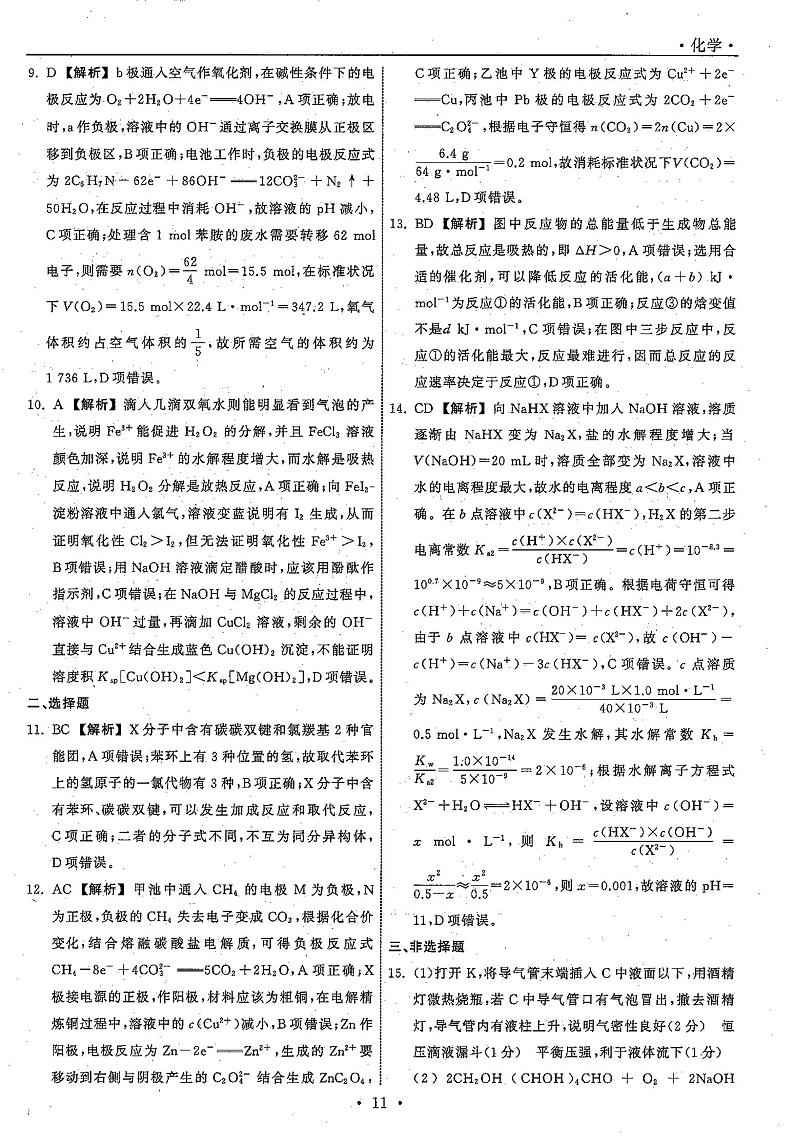 ·化学·
9. D【解析】b极通入空气作氧化剂,在碱性条件下的电
极反应为O₂+2H₂O+4e⁻══4OH⁻,A项正确;放电
时,a作负极,溶液中的OH⁻通过离子交换膜从正极区
移到负极区,B项正确;电池工作时,负极的电极反应式
为2C₆H₇N−62e⁻+86OH⁻══12CO₃²⁻+N₂↑+
50H₂O,在反应过程中消耗OH⁻,故溶液的pH减小,
C项正确;处理含1 mol苯胺的废水需要转移62 mol
电子,则需要n(O₂)=62/4 mol=15.5 mol,在标准状况
下V(O₂)=15.5 mol×22.4 L·mol⁻¹=347.2 L,氧气
体积约占空气体积的1/5,故所需空气的体积约为
1 736 L,D项错误。
10. A【解析】滴入几滴双氧水则能明显看到气泡的产
生,说明Fe³⁺能促进H₂O₂的分解,并且FeCl₃溶液
颜色加深,说明Fe³⁺的水解程度增大,而水解是吸热
反应,说明H₂O₂分解是放热反应,A项正确;向FeI₂-
淀粉溶液中通入氯气,溶液变蓝说明有I₂生成,从而
证明氧化性Cl₂>I₂,但无法证明氧化性Fe³⁺>I₂,
B项错误;用NaOH溶液滴定醋酸时,应该用酚酞作
指示剂,C项错误;在NaOH与MgCl₂的反应过程中,
溶液中OH⁻过量,再滴加CuCl₂溶液,剩余的OH⁻
直接与Cu²⁺结合生成蓝色Cu(OH)₂沉淀,不能证明
溶度积Kₛₚ[Cu(OH)₂]<Kₛₚ[Mg(OH)₂],D项错误。
二、选择题
11. BC【解析】X分子中含有碳碳双键和氯羰基2种官
能团,A项错误;苯环上有3种位置的氢,故取代苯环
上的氢原子的一氯代物有3种,B项正确;X分子中含
有苯环、碳碳双键,可以发生加成反应和取代反应,
C项正确;二者的分子式不同,不互为同分异构体,
D项错误。
12. AC【解析】甲池中通入CH₄的电极M为负极,N
为正极,负极的CH₄失去电子变成CO₂,根据化合价
变化,结合熔融碳酸盐电解质,可得负极反应式
CH₄−8e⁻+4CO₃²⁻══5CO₂+2H₂O,A项正确;X
极接电源的正极,作阳极,材料应该为粗铜,在电解精
炼铜过程中,溶液中的c(Cu²⁺)减小,B项错误;Zn作
阳极,电极反应为Zn−2e⁻══Zn²⁺,生成的Zn²⁺要
移动到右侧与阴极产生的C₂O₄²⁻结合生成ZnC₂O₄,
C项正确;乙池中Y极的电极反应式为Cu²⁺+2e⁻
══Cu,丙池中Pb极的电极反应式为2CO₂+2e⁻
══C₂O₄²⁻,根据电子守恒得n(CO₂)=2n(Cu)=2×
6.4 g/64 g·mol⁻¹=0.2 mol,故消耗标准状况下V(CO₂)=
4.48 L,D项错误。
13. BD【解析】图中反应物的总能量低于生成物总能
量,故总反应是吸热的,即ΔH>0,A项错误;选用合
适的催化剂,可以降低反应的活化能,(a+b) kJ·
mol⁻¹为反应①的活化能,B项正确;反应③的焓变值
不是d kJ·mol⁻¹,C项错误;在图中三步反应中,反
应①的活化能最大,反应最难进行,因而总反应的反
应速率决定于反应①,D项正确。
14. CD【解析】向NaHX溶液中加入NaOH溶液,溶质
逐渐由NaHX变为Na₂X,盐的水解程度增大;当
V(NaOH)=20 mL时,溶质全部变为Na₂X,溶液中
水的电离程度最大,故水的电离程度a<b<c,A项正
确。在b点溶液中c(X²⁻)=c(HX⁻),H₂X的第二步
电离常数Kₐ₂=c(H⁺)×c(X²⁻)/c(HX⁻)=c(H⁺)=10⁻⁸·³=
10⁰·⁷×10⁻⁹≈5×10⁻⁹,B项正确。根据电荷守恒可得
c(H⁺)+c(Na⁺)=c(OH⁻)+c(HX⁻)+2c(X²⁻),
由于b点溶液中c(HX⁻)=c(X²⁻),故c(OH⁻)−
c(H⁺)=c(Na⁺)−3c(HX⁻),C项错误。c点溶质
为Na₂X,c(Na₂X)=20×10⁻³ L×1.0 mol·L⁻¹/40×10⁻³ L=
0.5 mol·L⁻¹,Na₂X发生水解,其水解常数Kₕ=
K_w/Kₐ₂=1.0×10⁻¹⁴/5×10⁻⁹=2×10⁻⁶;根据水解离子方程式
X²⁻+H₂O⇌HX⁻+OH⁻,设溶液中c(OH⁻)=
x mol·L⁻¹,则Kₕ=c(HX⁻)×c(OH⁻)/c(X²⁻)=
x²/0.5−x≈x²/0.5=2×10⁻⁶,则x=0.001,故溶液的pH=
11,D项错误。
三、非选择题
15. (1)打开K,将导气管末端插入C中液面以下,用酒精
灯微热烧瓶,若C中导气管口有气泡冒出,撤去酒精
灯,导气管内有液柱上升,说明气密性良好(2分) 恒
压滴液漏斗(1分) 平衡压强,利于液体流下(1分)
(2) 2CH₂OH(CHOH)₄CHO + O₂ + 2NaOH
· 11 ·